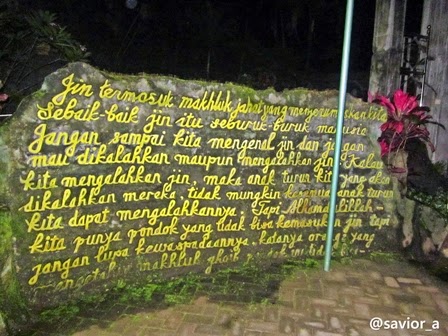 Jin termasuk makhluk jahat yang menjerumuskan kita
Sebaik-baik jin itu seburuk-buruk manusia
Jangan sampai kita mengenal jin dan jangan
mau dikalahkan maupun mengalahkan jin. Kalau
kita mengalahkan jin, maka anak turun kita yang akan
dikalahkan mereka tidak mungkin semua anak turun
kita dapat mengalahkannya, Tapi Alhamdulillah
kita punya pondok yang tidak bisa kemasukan jin tapi
jangan lupa kewaspadaannya, katanya orang yang
mengetahui makhluk ghoib
@savior_a